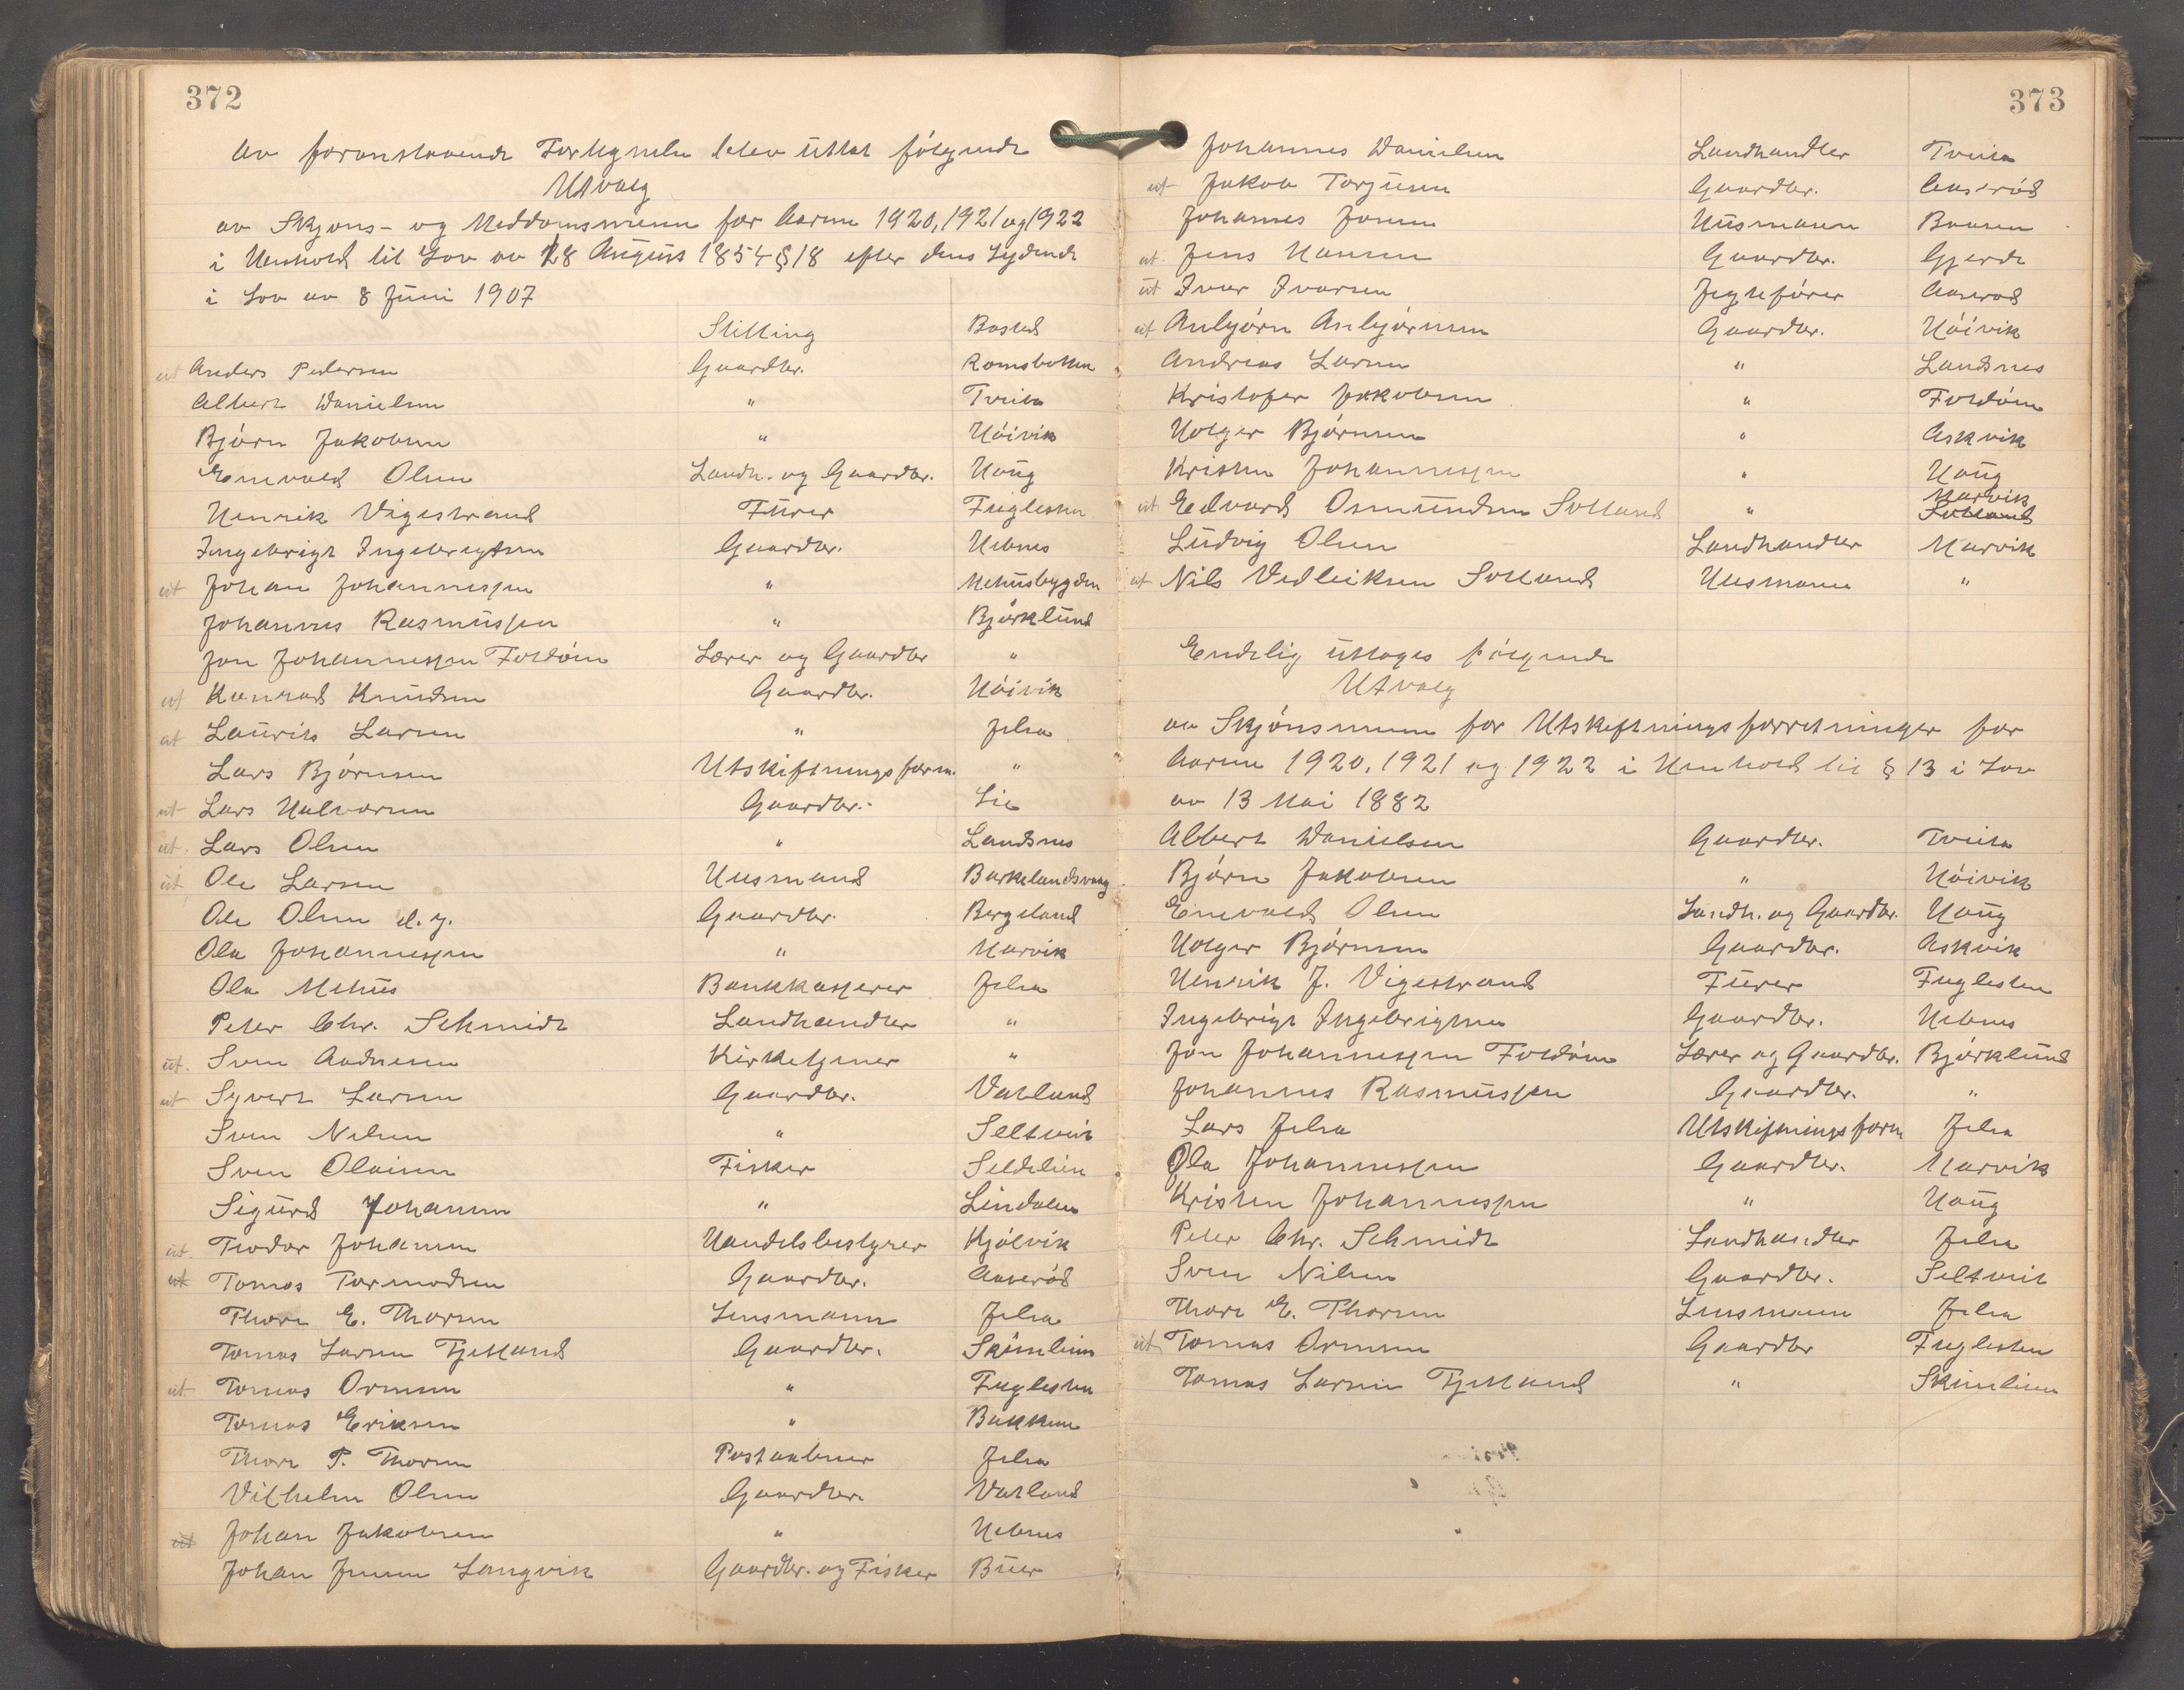 372
Av foranstaaende Fortegnelse blev uttat følgende
Utvalg
av Skjøns- og Meddomsmenn for Aarene 1920, 1921 og 1922
i Henhold til Lov av 28 August 1854 § 18 efter dens Lydende
i Lov av 8 Juni 1907
Stilling Bosted
ut Anders Pedersen Gaardbr. Ramsbotten
Albert Danielsen " Tveita
Bjørn Jakobsen " Høivik
Enevald Olsen Landh. og Gaardbr. Haug
Henrik Vigestrand Furer Fuglesten
Ingebrigt Ingebrigtsen Gaardbr. Hebnes
ut Johan Johannessen " Mehusbygden
Johannes Rasmussen " Bjørklund
Jon Johannessen Foldøen Lærer og Gaardbr "
ut Konrad Knudsen Gaardbr. Høivik
ut Laurits Larsen " Jelsa
Lars Bjørnsen Utskiftningsform. "
ut Lars Halvorsen Gaardbr. Lie
ut. Lars Olsen " Landsnes
ut Ole Larsen Husmand Barkelandsvaag
Ole Olsen d. y. Gaardbr. Bergeland
Ola Johannessen " Marvik
Ola Mehus Bankkasserer Jelsa
Peter Chr. Schmidt Landhandler "
ut. Sven Andresen Kirketjener "
ut Syvert Larsen Gaardbr. Vatland
Sven Nilsen " Seltveit
Sven Olaisen Fisker Seldelien
Sigurd Johansen " Lindalen
ut. Teodor Johansen Handelsbestyrer Kjølvik
ut Tomas Tormodsen Gaardbr. Aaserød
Thore E. Thorsen Lensmann Jelsa
Tomas Larsen Tjelland Gaardbr. Skimlien
ut Tomas Ormsen " Fuglesten
Tomas Eriksen " Bakken
Thore P. Thorsen Postaabner Jelsa
Vilhelm Olsen Gaardbr. Vatland
ut Johan Jakobsen " Hebnes
Johan Jensen Langvik Gaardbr. og Fisker Buer
373
Johannes Danielsen Landhandler Tveita
ut Jakob Torjusen Gaardbr. Aaserød
Johannes Jonsen Husmann Baasen
ut. Jens Hansen Gaardbr. Gjerde
ut Ivar Ivarsen Jegtefører Aaserød
ut Anbjørn Anbjørnsen Gaardbr. Høivik
Andreas Larsen " Landsnes
Kristofer Jakobsen " Foldøen
Holger Bjørnsen " Askvik
Kristen Johannessen " Haug
ut Edvard Osmundsen Solland " Marvik Solland
Ludvig Olsen Landhandler Marvik
ut Nils Vedleiksen Solland Husmann "
Endelig uttages følgende
Utvalg
av Skjønsmenn for Utskiftningsforretninger for
Aarene 1920, 1921 og 1922 i Henhold til § 13 i Lov
av 13 Mai 1882
Albert Danielsen Gaardbr. Tveita
Bjørn Jakobsen " Høivik
Enevald Olsen Landh. og Gaardbr. Haug
Holger Bjørnsen Gaardbr. Askvik
Henrik J. Vigestrand Furer Fuglesten
Ingebrigt Ingebrigtsen Gaardbr. Hebnes
Jon Johannessen Foldøen Lærer og Gaardbr. Bjørklund
Johannes Rasmussen Gaardbr. "
Lars Jelsa Utskiftningsform Jelsa
Ola Johannessen Gaardbr. Marvik
Kristen Johannessen " Haug
Peter Chr. Schmidt Landhandler Jelsa
Sven Nilsen Gaardbr. Seltveit
Thore E. Thorsen Lensmann Jelsa
ut Tomas Ormsen Gaardbr Fuglesten
Tomas Larsen Tjelland " Skimlien